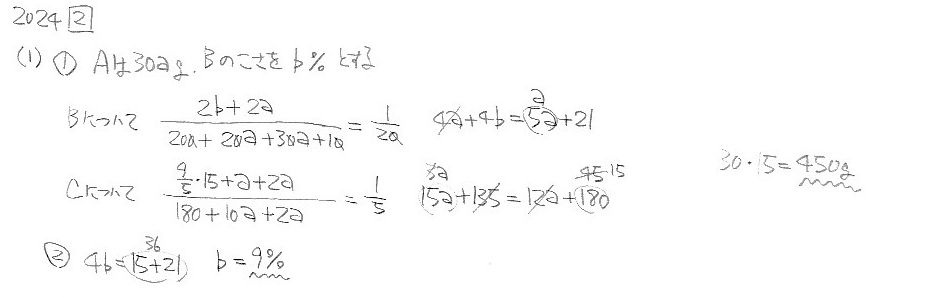 2024 [2]
(1) ① Aは30a g、Bのこさをb%とする
Bについて (2b+2a)/(200+20a+30a+10) = 1/20 4a+4b=5a+21 a
Cについて (9/5·15+a+2a)/(180+10a+2a) = 1/5 15a+135=12a+180 3a 45 15
30·15=450g
② 4b=15+21 36 b=9%